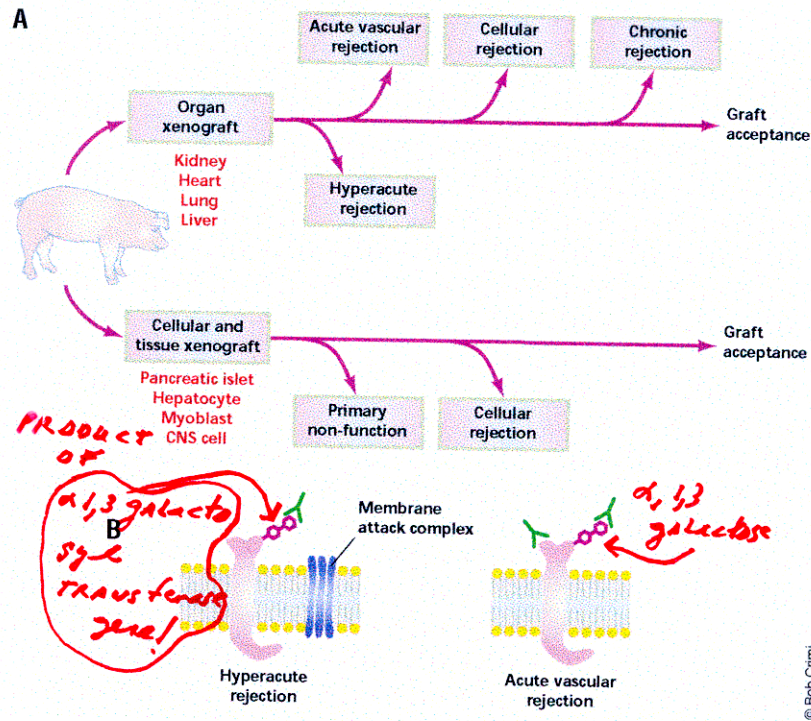 A
Acute vascular
rejection
Cellular
rejection
Chronic
rejection
Organ
xenograft
Graft
acceptance
Kidney
Heart
Lung
Liver
Hyperacute
rejection
Cellular and
tissue xenograft
Graft
acceptance
Pancreatic islet
Hepatocyte
Myoblast
CNS cell
Primary
non-function
Cellular
rejection
PRODUCT
OF
α 1,3 galacto
syl
TRANSferase
gene!
B
Membrane
attack complex
α, 1,3
galactose
Hyperacute
rejection
Acute vascular
rejection
© Bob Crimi